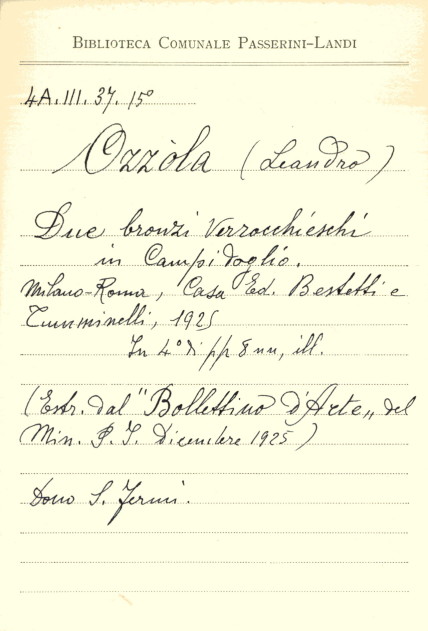 BIBLIOTECA COMUNALE PASSERINI-LANDI
4A.III.37.15°
Ozzòla (Leandro)
Due bronzi Verrocchieschi
in Campidoglio.
Milano-Roma, Casa Ed. Bestetti e
Tumminelli, 1925
In 4° di pp 8 nn, ill.
(Estr. dal "Bollettino d'Arte„ del
Min. P. I. Dicembre 1925)
Dono S. Fermi.